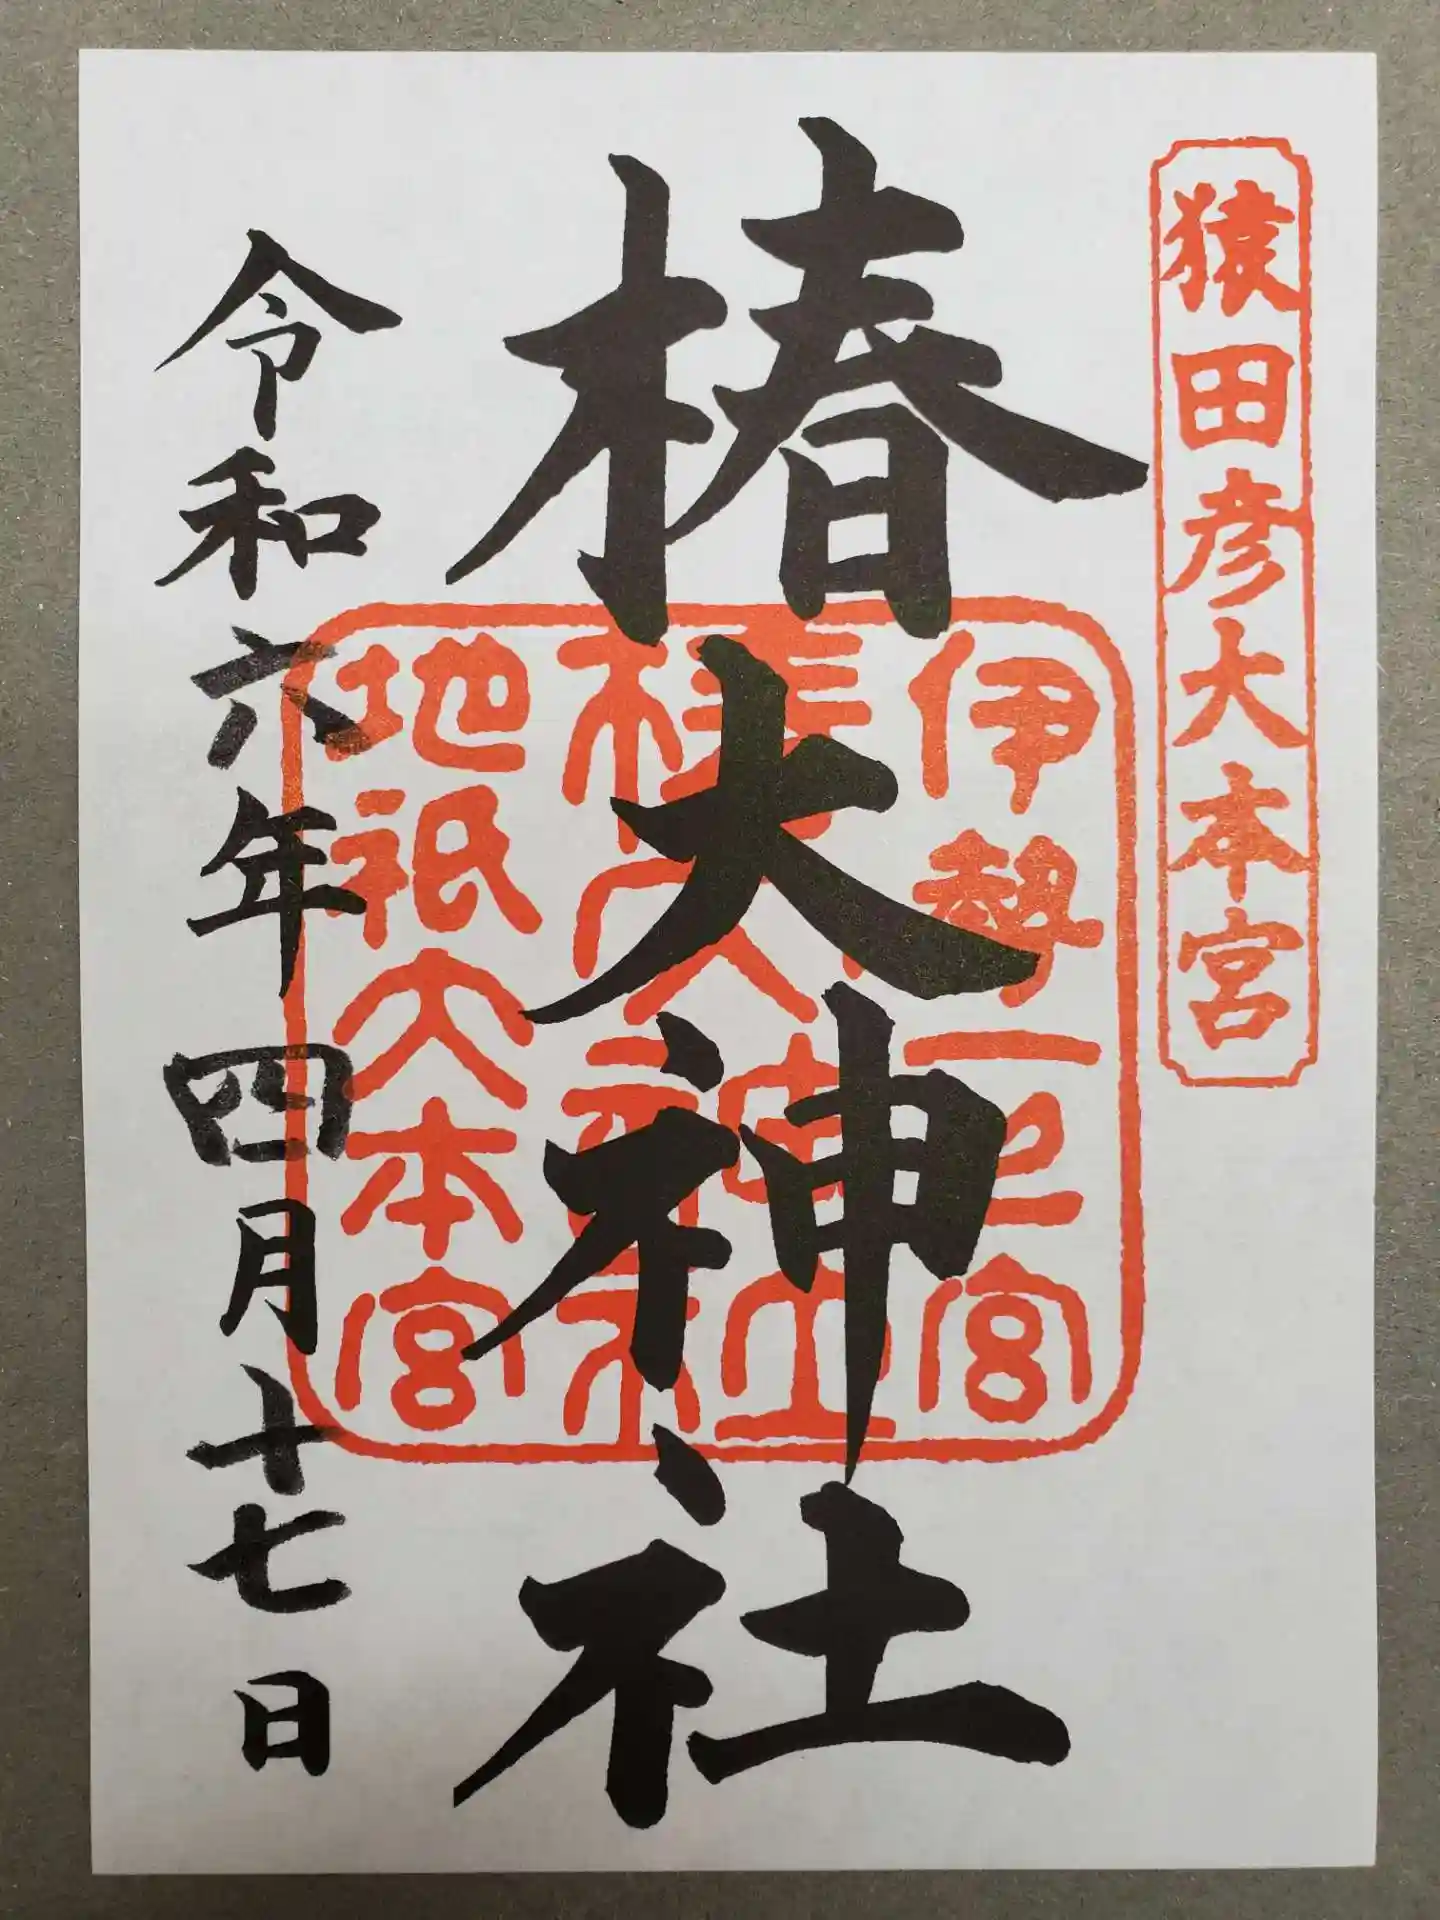 猿田彦大本宮
椿大神社
伊勢一之宮
椿大神社
地祇大本宮
令和六年四月十七日